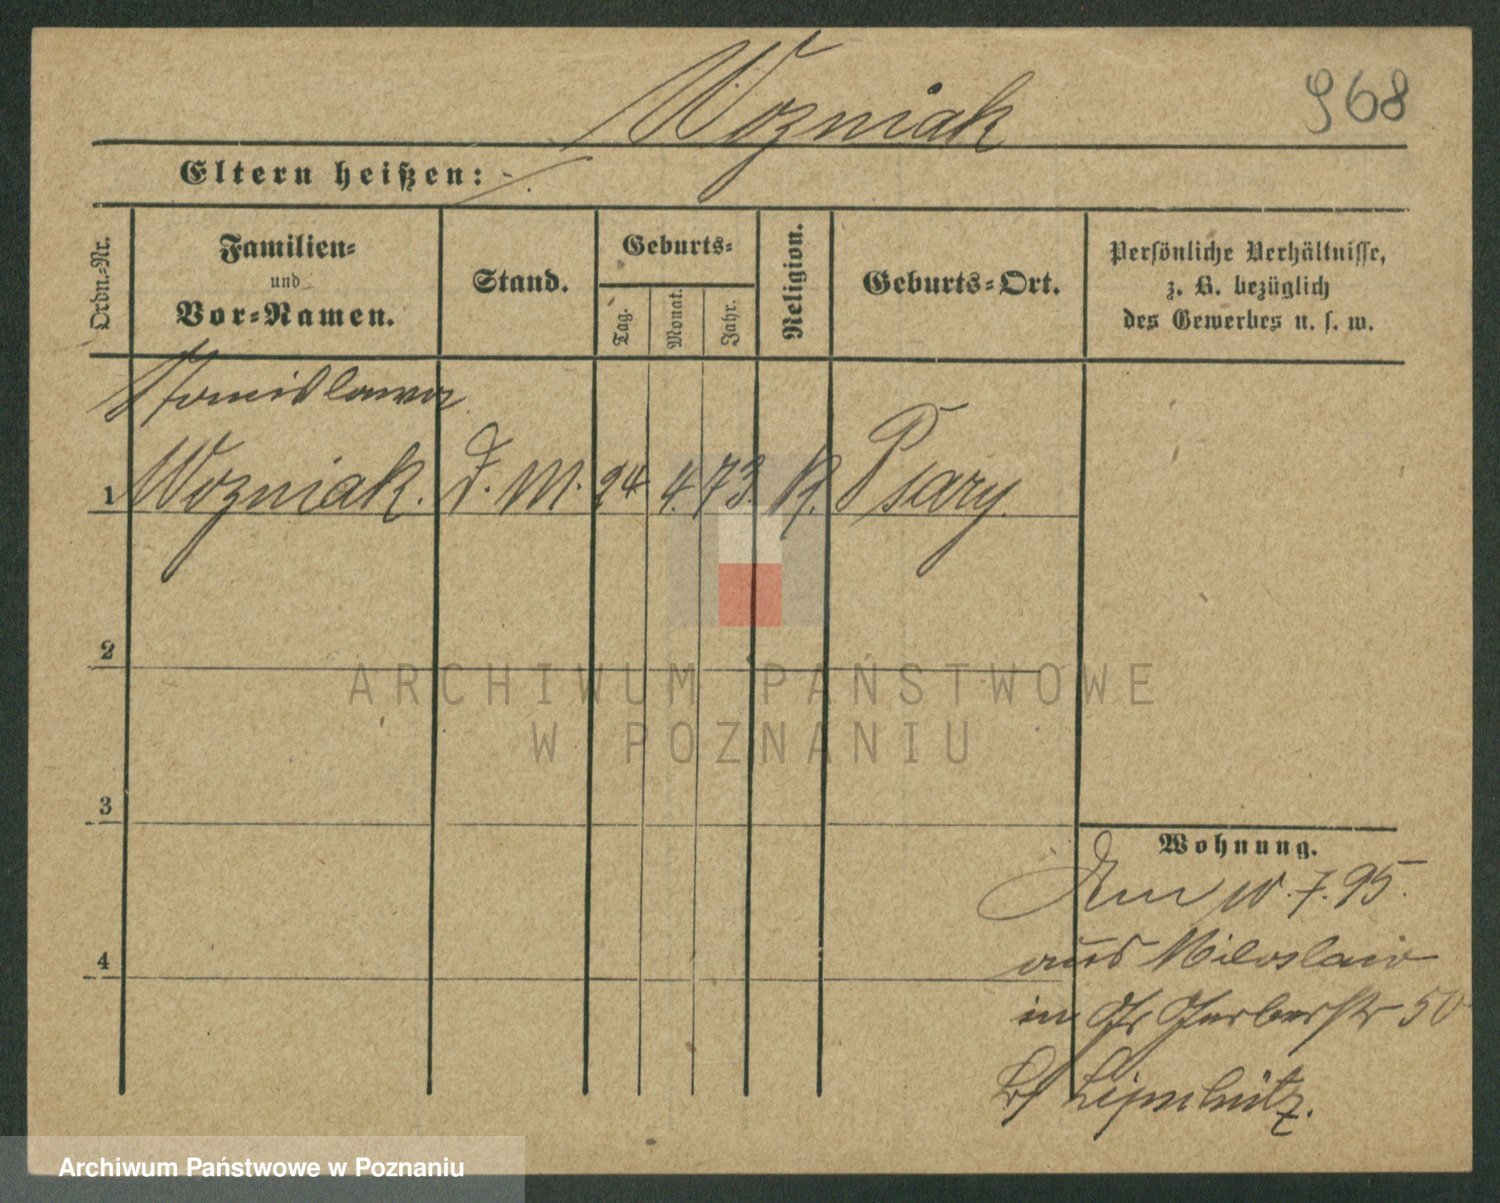 Wozniak
968
Eltern heißen: -.
Ordn.-Nr.
Familien-
und
Vor-Namen.
Stand.
Geburts-
Tag.
Monat.
Jahr.
Religion.
Geburts-Ort.
Persönliche Verhältnisse,
z. B. bezüglich
des Gewerbes u. s. w.
Stanislawa
1 Wozniak. D. M. 24 4. 73. K. Psary.
2
3
4
Wohnung.
Am 10.7.95.
aus Miloslaw
in Gr Gerberstr 50
bei
ARCHIWUM PAŃSTWOWE
W POZNANIU
Archiwum Państwowe w Poznaniu